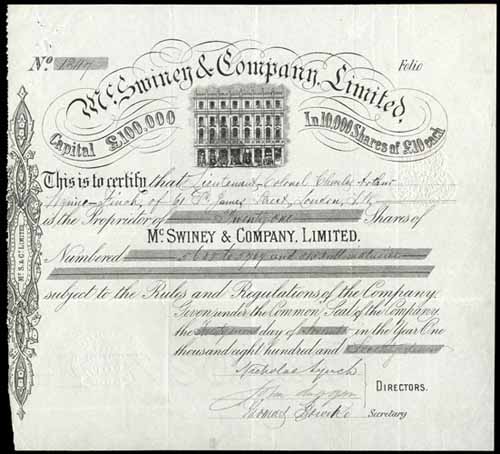 No. 1247
Folio
McSwiney & Company, Limited.
Capital £100,000
In 10,000 Shares of £10 each
This is to certify that Lieutenant-Colonel Charles
Wynne-Finch, of St. James Street, London,
is the Proprietor of Twenty one Shares of
McSWINEY & COMPANY, LIMITED.
Numbered
subject to the Rules and Regulations of the Company.
Given under the Common Seal of the Company
the day of in the Year One
thousand eight hundred and Seventy
Nicholas Lynch
John
DIRECTORS.
Thomas
Secretary
McS. & Co. LIMITED.